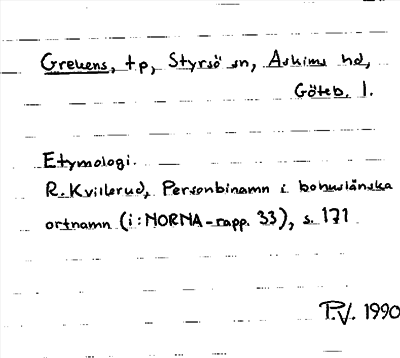 Grevens, tp, Styrsö sn, Askims hd,
Göteb. l.
Etymologi.
R. Kvillerud, Personbinamn i bohuslänska
ortnamn (i: NORNA-rapp. 33), s. 171
P.V. 1990